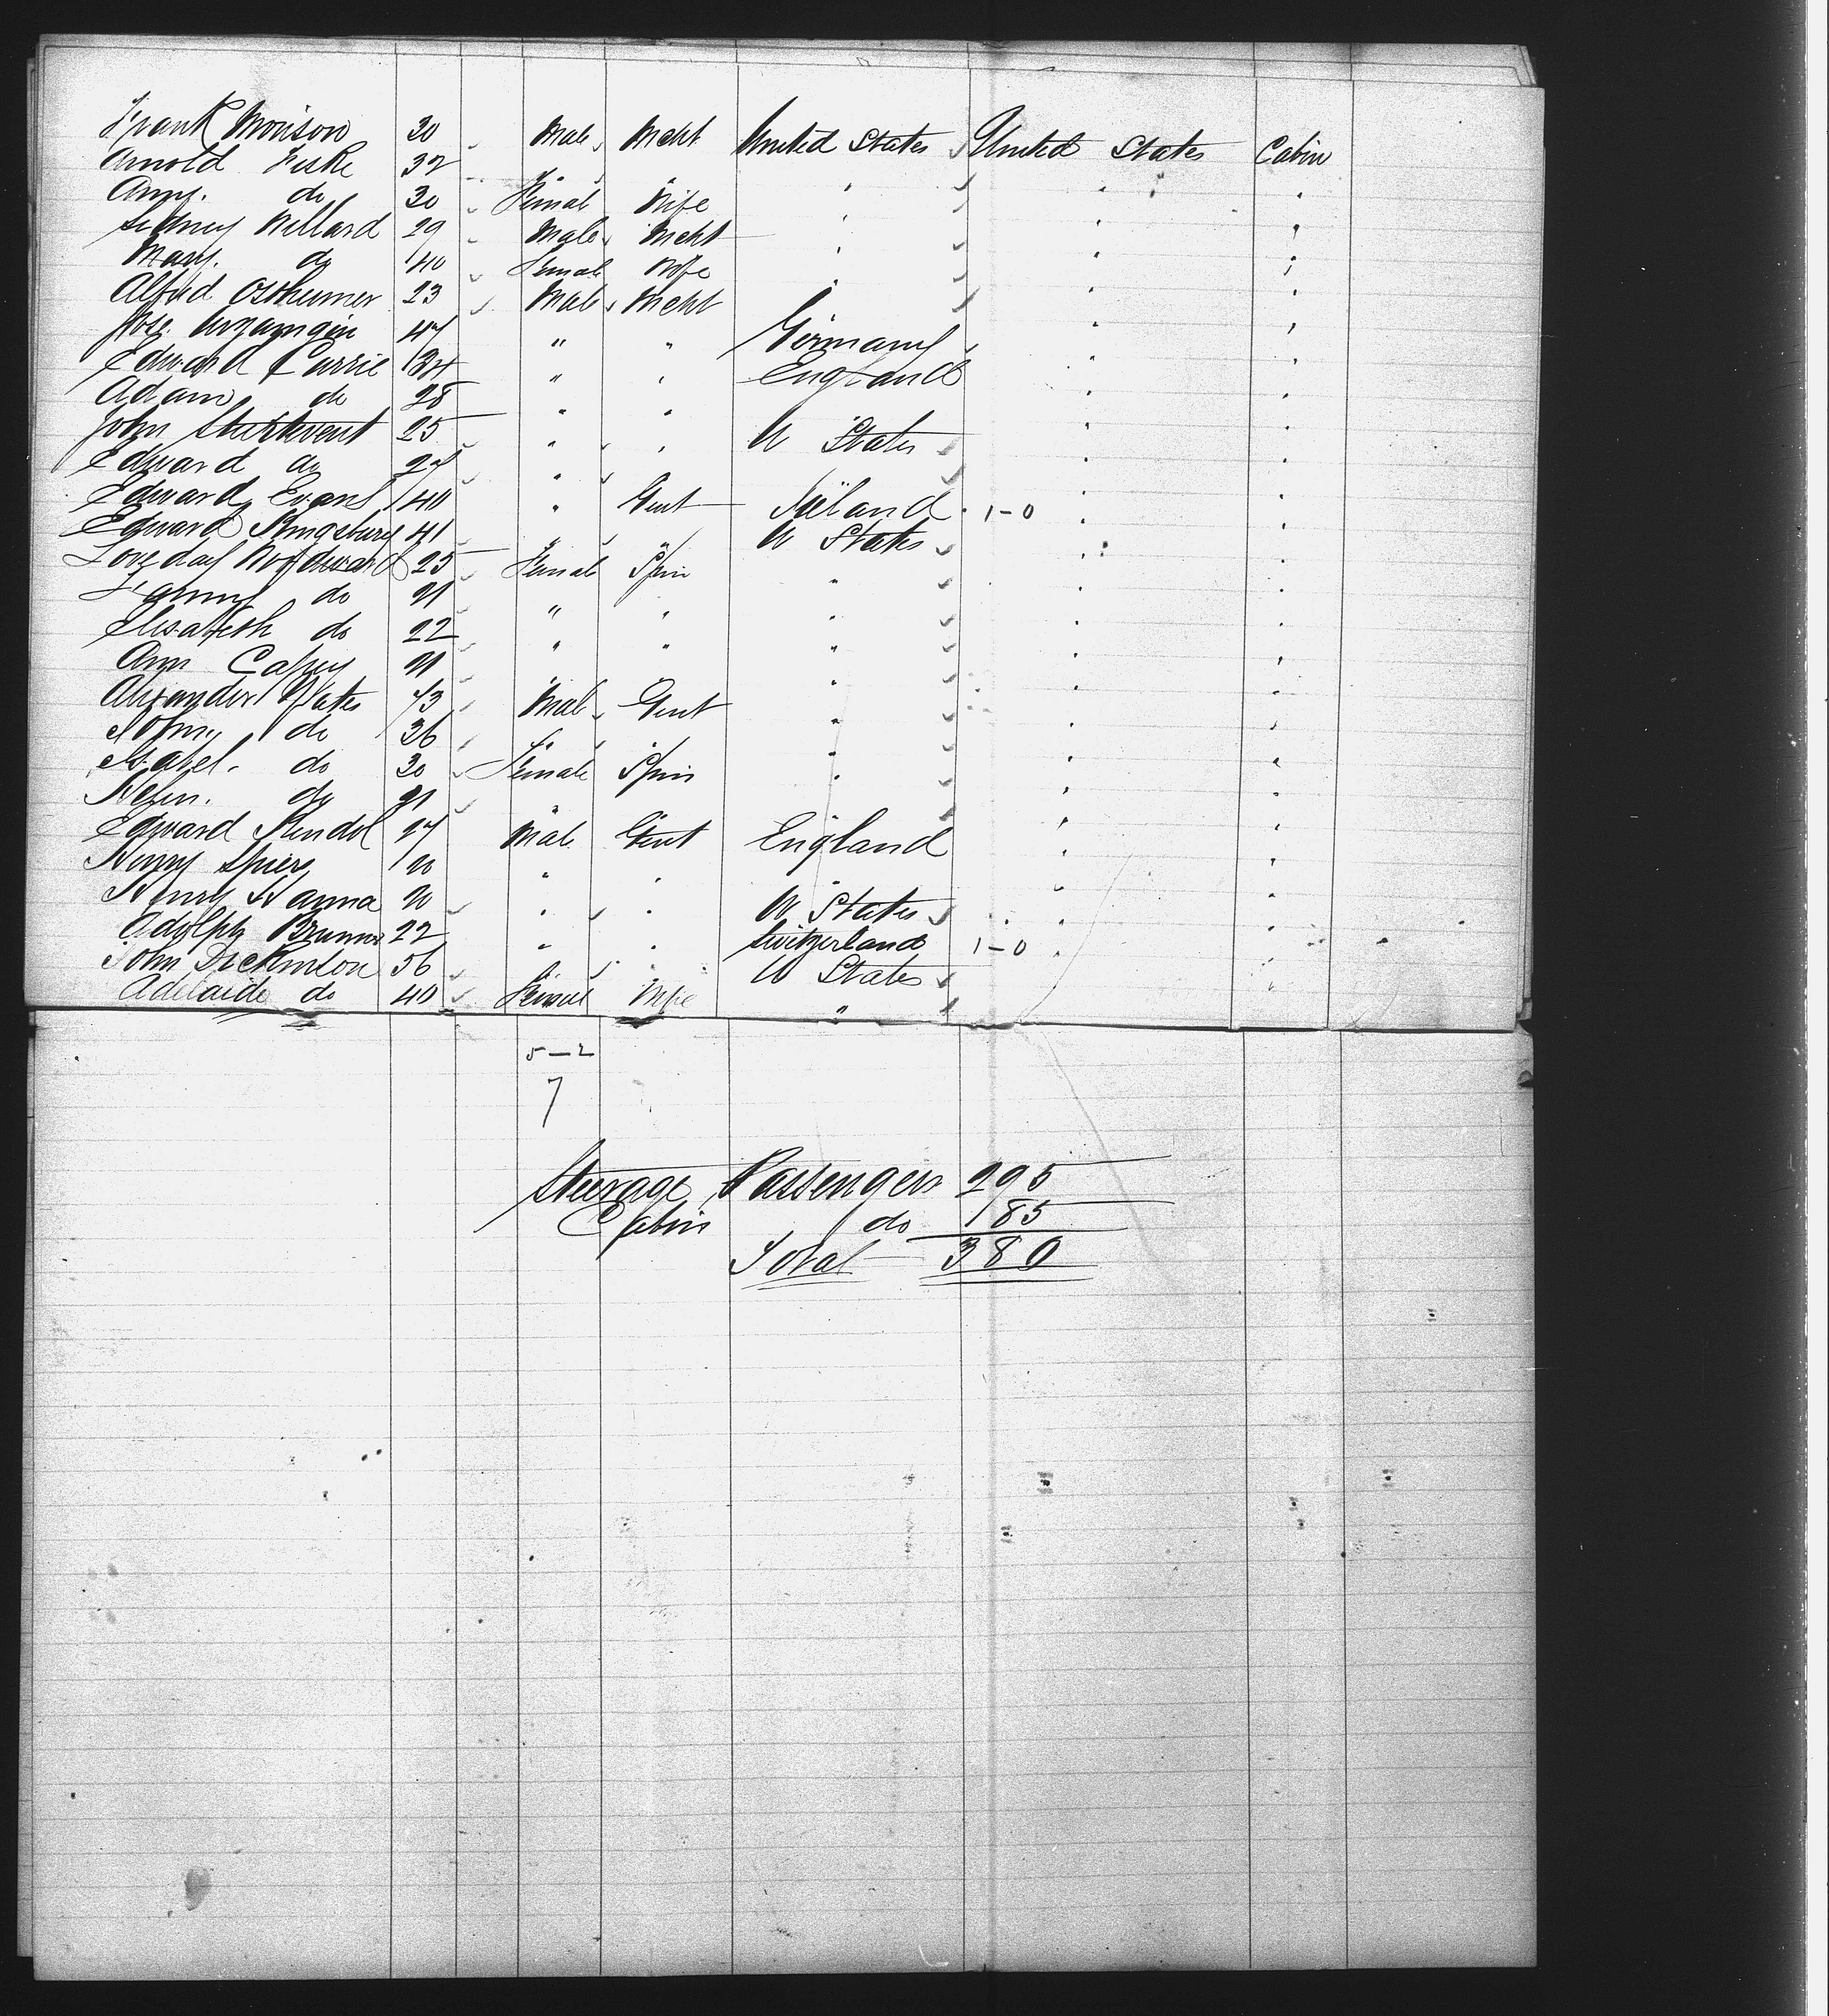 Frank Morison 30 Male Mcht United States United States Cabin
Arnold Fiske 32 " " " " "
Amy. do 30 Female Wife " " "
Sidney Willard 29 Male Mcht " " "
Mary. do 40 Female Wife " " "
Alfred Ostheimer 23 Male Mcht " " "
Jose 47 " " Germany " "
Edward Currie 34 " " England " "
Adam do 28 " " " " "
John Sturtevent 25 " " U States " "
Edward do 27 " " " " "
Edward Evans 40 " Gent Ireland 1-0 " "
Edward Kingsbury 41 " " U States " "
Loveday Woodward 25 Female Spin " " "
Fanny do 21 " " " " "
Elisabeth do 22 " " " " "
Ann 21 " " " " "
Alexander Yates 73 Male Gent " " "
John do 36 " " " " "
Isabel. do 30 Female Spin " " "
Helen. do 21 " " " " "
Edward Kendol 27 Male Gent England " "
Henry Spiers 20 " " " " "
Henry Hanna 20 " " U States " "
Adolph Brunner 22 " " Switzerland 1-0 " "
John Dickinson 56 " " U States " "
Adelaide do 40 Female Wife "
5-2
7
Steerage Passengers 295
Cabin do 185
Total 380